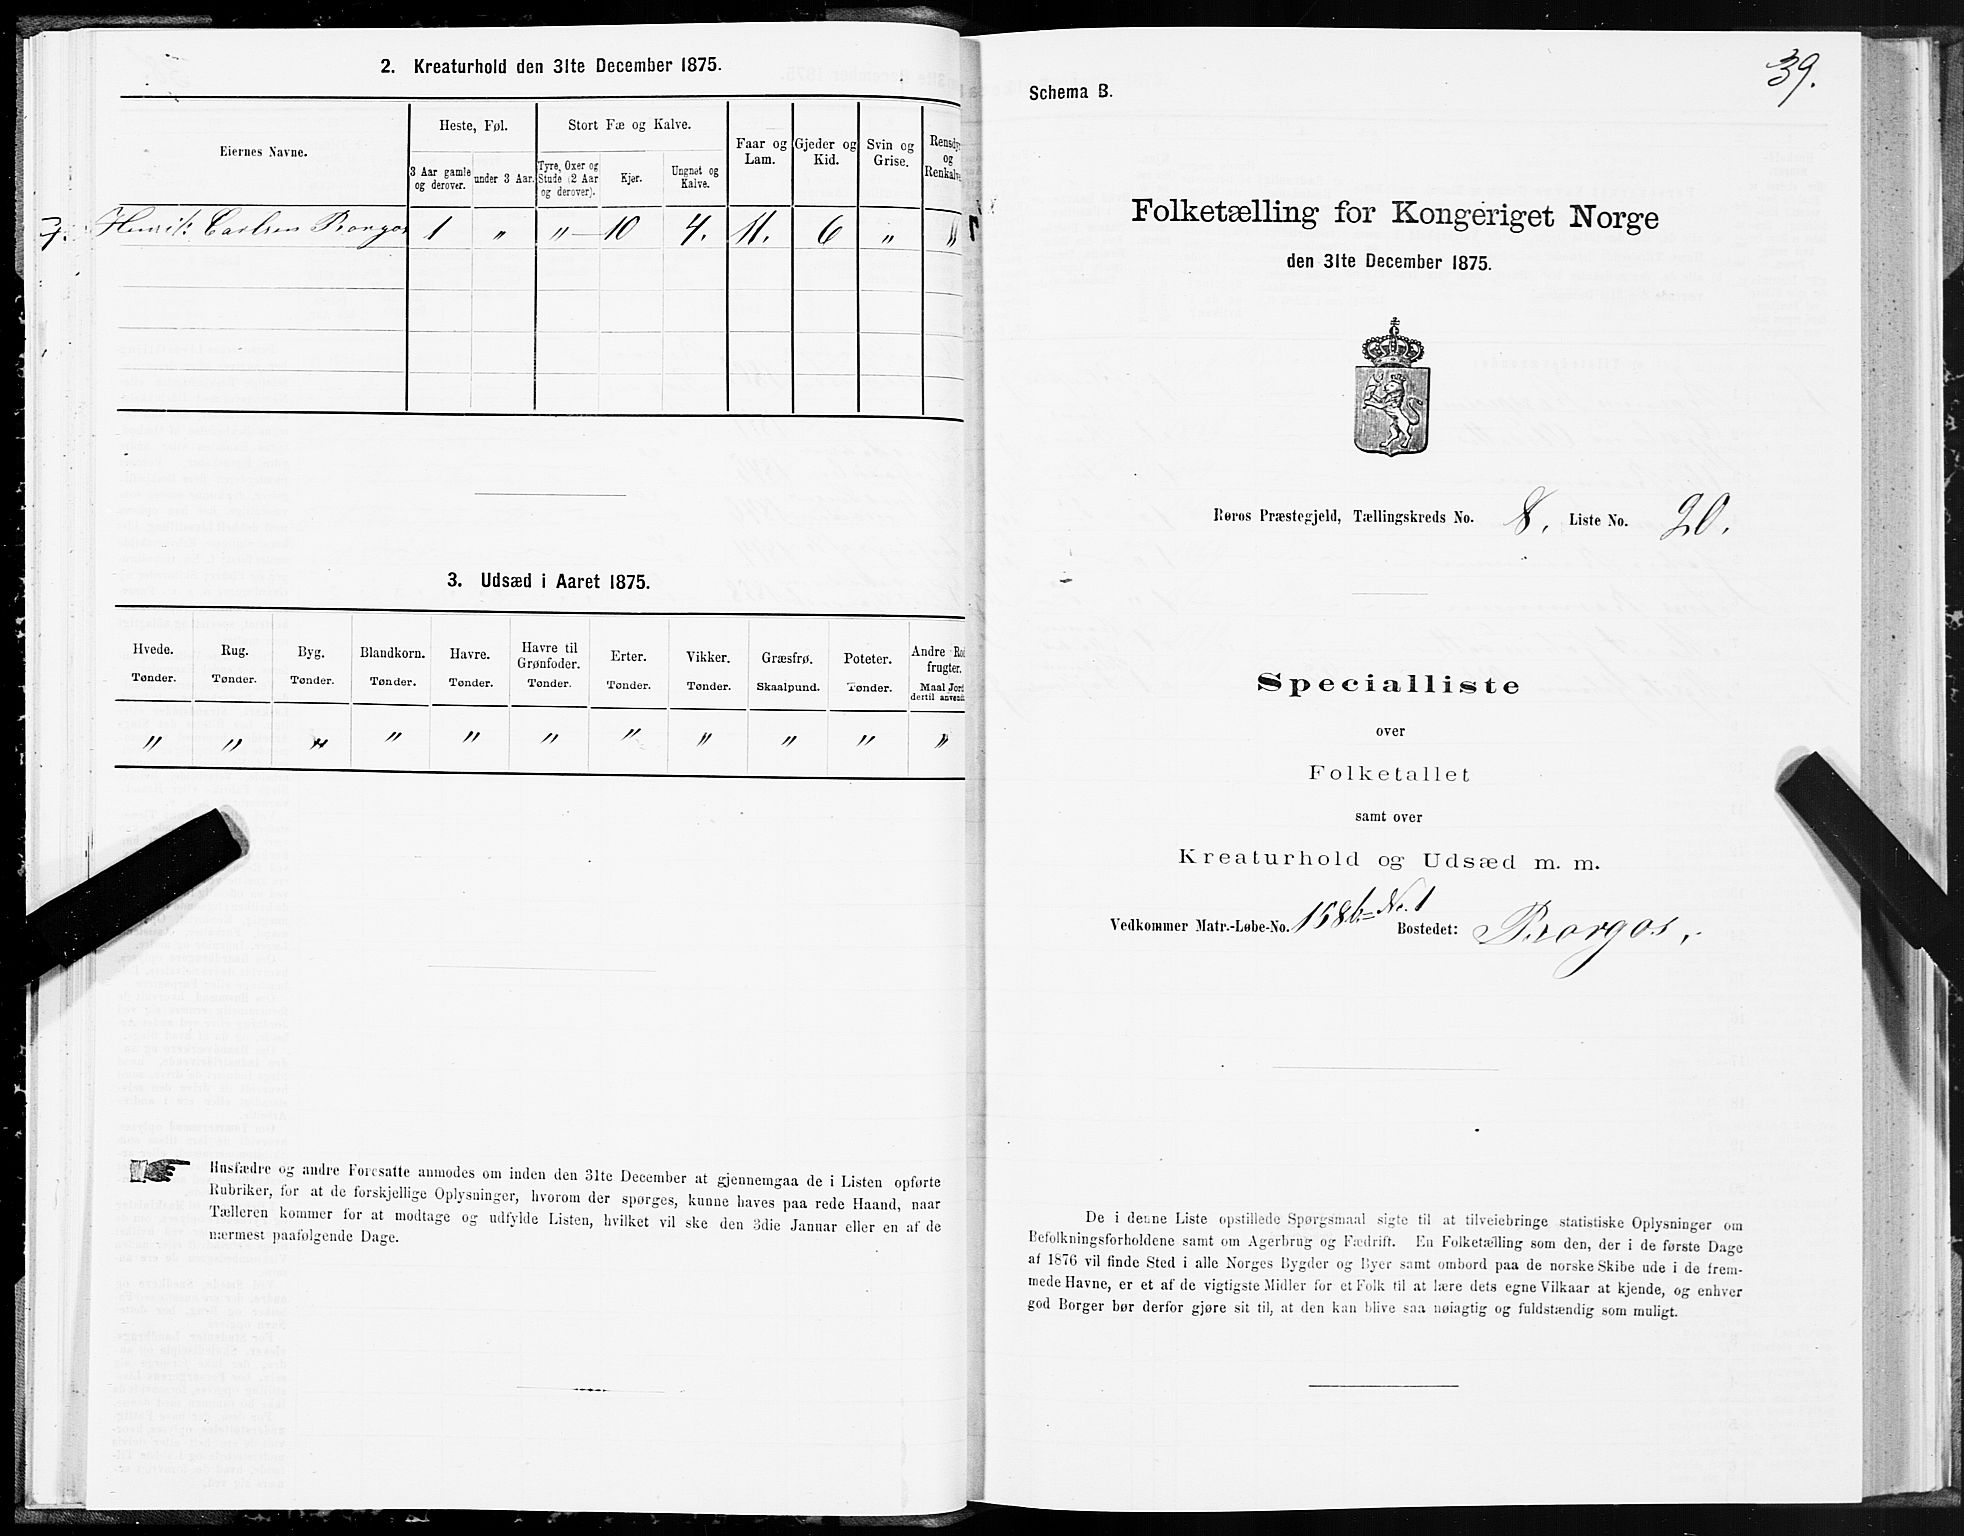 2. Kreaturhold den 31te December 1875.
Eiernes Navne.
Heste, Føl.
Stort Fæ og Kalve.
Faar og Lam.
Gjeder og Kid.
Svin og Grise.
Rensdyr og Renkalve
3 Aar gamle og derover.
under 3 Aar.
Tyre, Oxer og Stude (2 Aar og derover).
Kjør.
Ungnøt og Kalve.
7. Henrik Carlsen Borgos 1 " " 10 4. 11. 6 " "
3. Udsæd i Aaret 1875.
Hvede. Rug. Byg. Blandkorn. Havre. Havre til Grønfoder. Erter. Vikker. Græsfrø. Poteter. Andre Rod frugter.
Tønder. Tønder. Tønder. Tønder. Tønder. Tønder. Tønder. Tønder. Skaalpund. Tønder. Maal Jord dertil anvendt
" " " " " " " " " " "
Husfædre og andre Foresatte anmodes om inden den 31te December at gjennemgaa de i Listen opførte
Rubriker, for at de forskjellige Oplysninger, hvorom der spørges, kunne haves paa rede Haand, naar
Tælleren kommer for at modtage og udfylde Listen, hvilket vil ske den 3die Januar eller en af de
nærmest paafølgende Dage.
39.
Schema B.
Folketælling for Kongeriget Norge
den 31te December 1875.
Røros Præstegjeld, Tællingskreds No. 8. Liste No. 20.
Specialliste
over
Folketallet
samt over
Kreaturhold og Udsæd m. m.
Vedkommer Matr.-Løbe-No. 158b = No. 1 Bostedet: Borgos.
De i denne Liste opstillede Spørgsmaal sigte til at tilveiebringe statistiske Oplysninger om
Befolkningsforholdene samt om Agerbrug og Fædrift. En Folketælling som den, der i de første Dage
af 1876 vil finde Sted i alle Norges Bygder og Byer samt ombord paa de norske Skibe ude i de frem-
mede Havne, er et af de vigtigste Midler for et Folk til at lære dets egne Vilkaar at kjende, og enhver
god Borger bør derfor gjøre sit til, at den kan blive saa nøiagtig og fuldstændig som muligt.